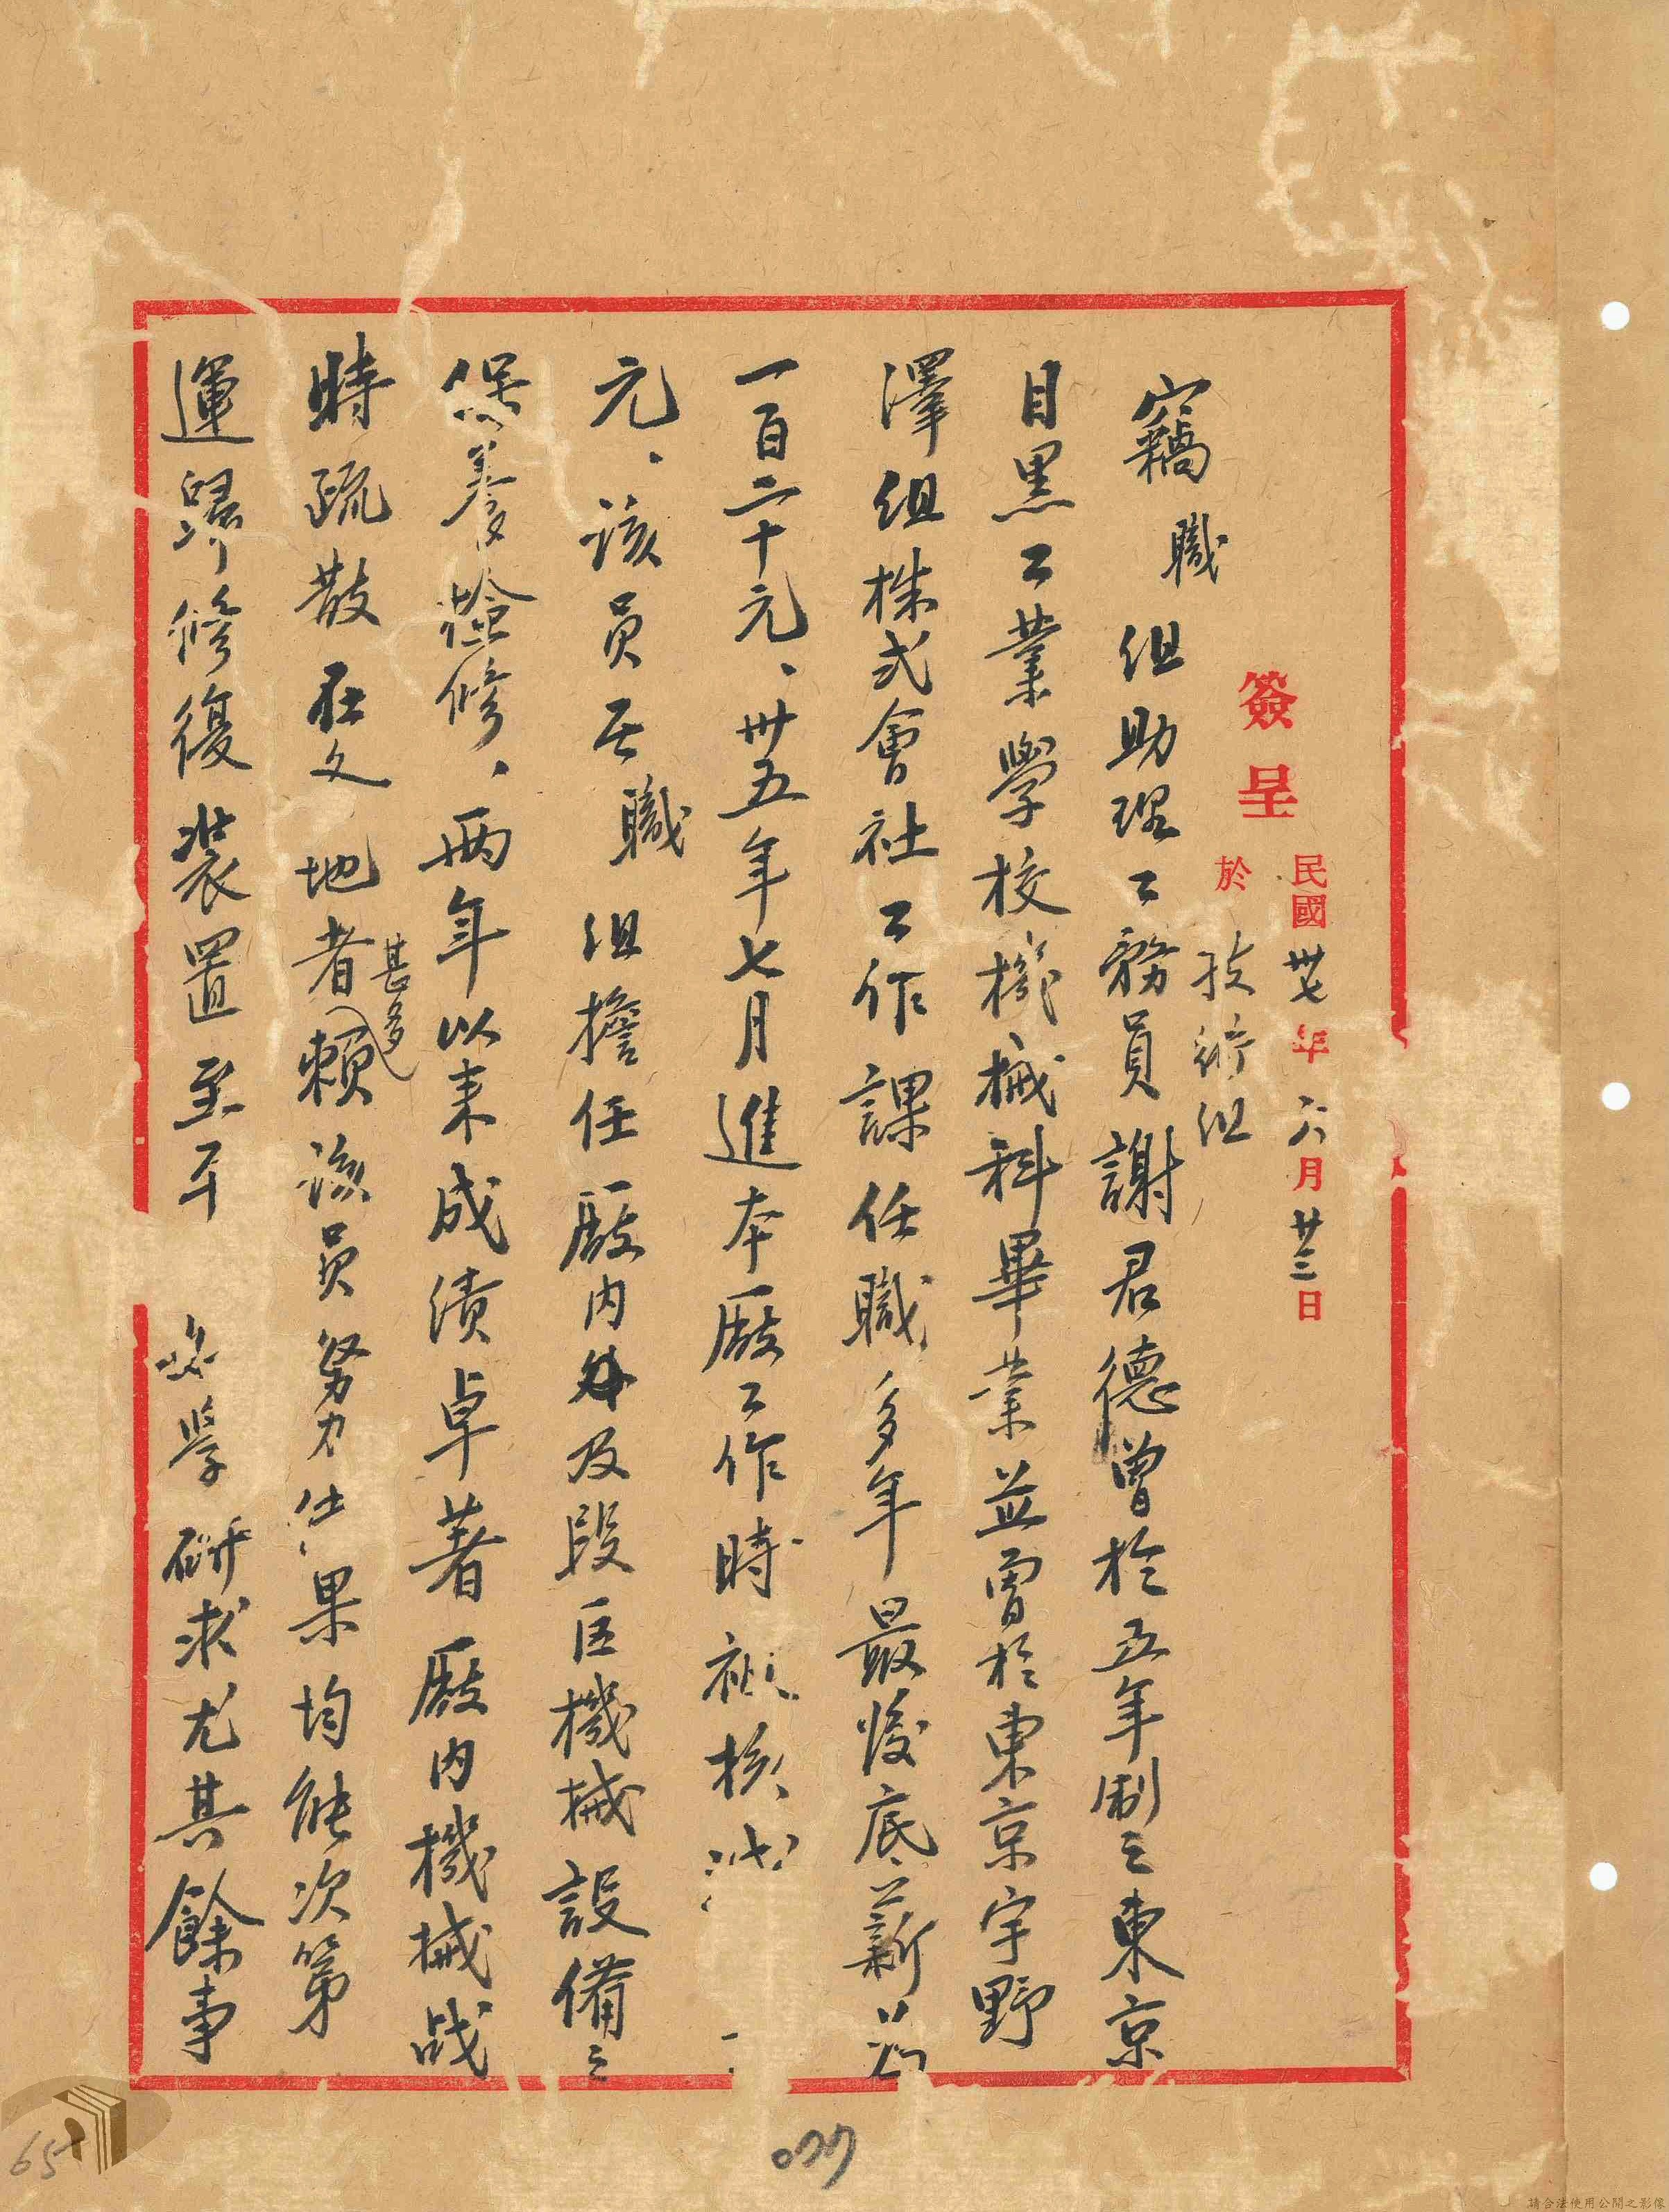 簽呈 民國卅七年六月廿三日
於技術組
竊職組助理工務員謝君德曾於五年制之東京
目黑工業學校機械科畢業並曾於東京宇野
澤組株式會社工作課任職多年最後底薪
一百二十元、卅五年七月進本廠工作時 核
元、該員在職組擔任廠內外及段區機械設備之
保養檢修、兩年以來成績卓著廠內機械战
時疏散在文地者甚多賴該員努力 果均能次第
運歸修復裝置至于 學研求尤其餘事
077
65
請合法使用公開之影像